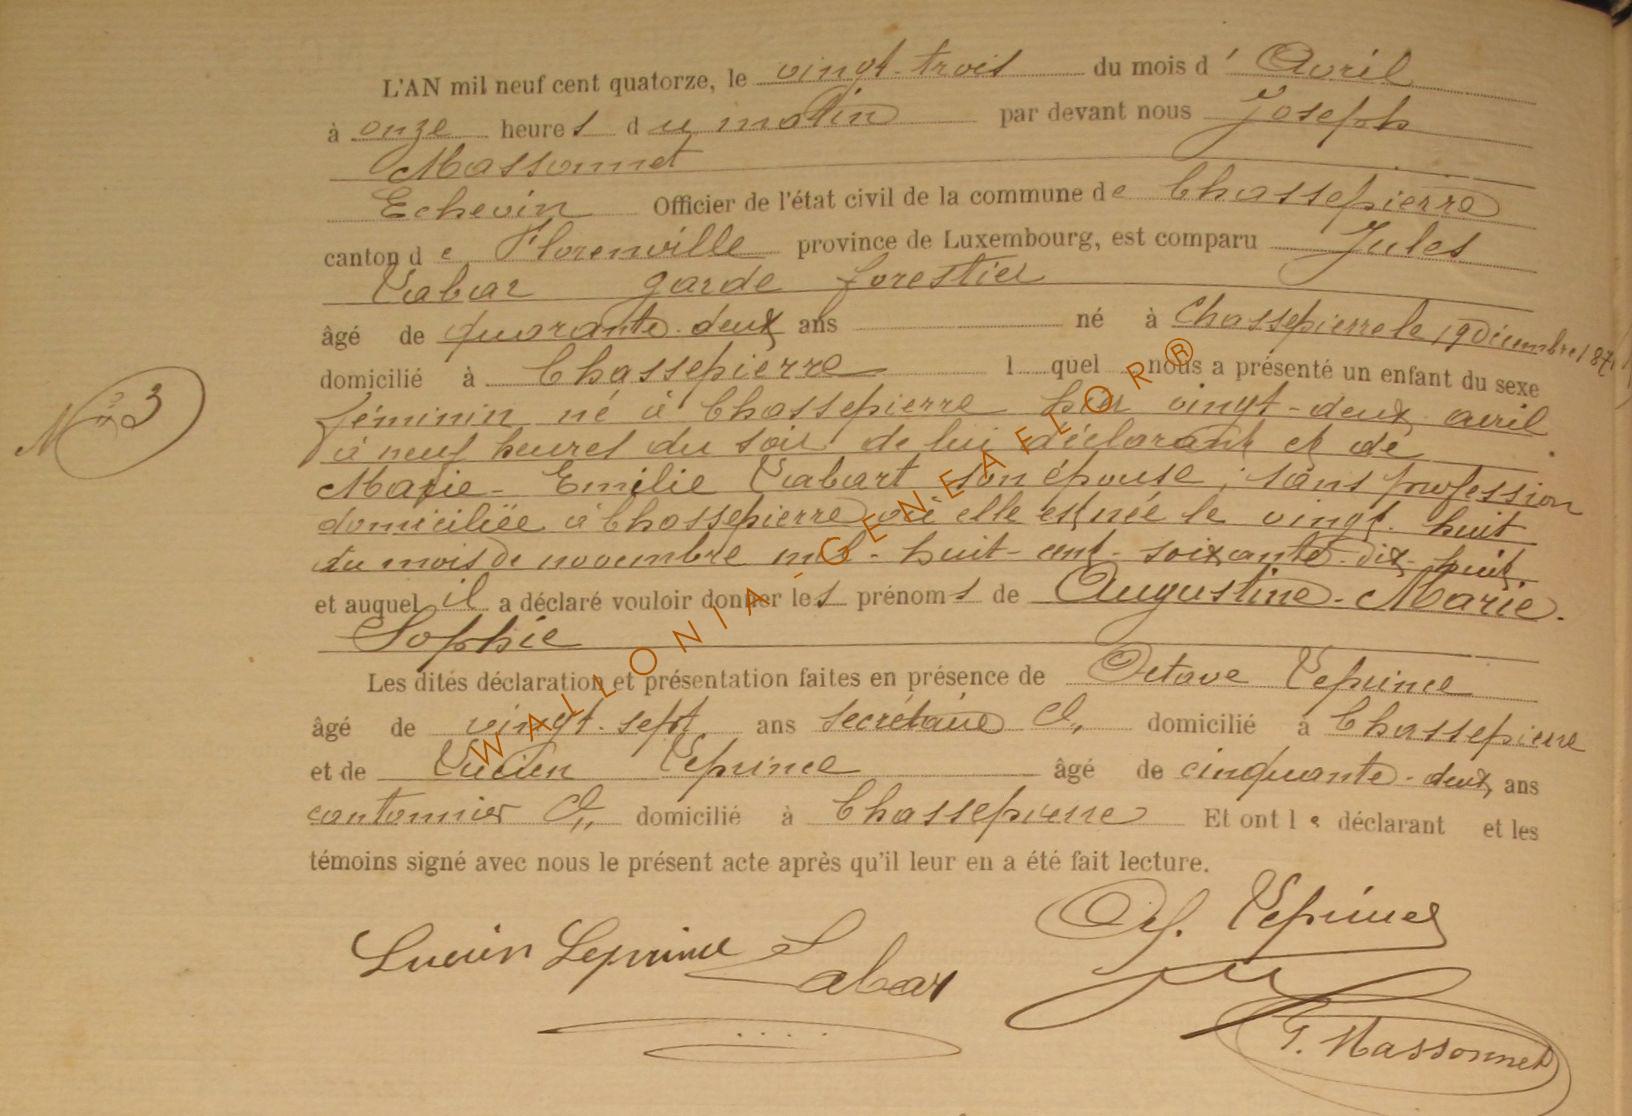 L'AN mil neuf cent quatorze, le vingt-trois du mois d'Avril
à onze heures du matin par devant nous Joseph
Massonnet
Echevin Officier de l'état civil de la commune de Chassepierre
canton de Florenville province de Luxembourg, est comparu Jules
Labar garde forestier
âgé de quarante-deux ans né à Chassepierre le 19 décembre 1871
domicilié à Chassepierre l quel nous a présenté un enfant du sexe
N° 3
féminin né à Chassepierre hier vingt-deux avril
à neuf heures du soir de lui déclarant et de
Marie-Emilie Labart son épouse, sans profession
domiciliée à Chassepierre où elle est née le vingt-huit
du mois de novembre mil-huit-cent-soixante-dix-huit.
et auquel il a déclaré vouloir donner les prénoms de Augustine-Marie-
Sophie
Les dites déclaration et présentation faites en présence de Octave Leprince
âgé de vingt-sept ans secrétaire domicilié à Chassepierre
et de Lucien Leprince âgé de cinquante-deux ans
cantonnier domicilié à Chassepierre Et ont le déclarant et les
témoins signé avec nous le présent acte après qu'il leur en a été fait lecture.
Leprince
Lucien Leprince Labar
J. Massonnet
WALLONIA-GENEAFLOR®